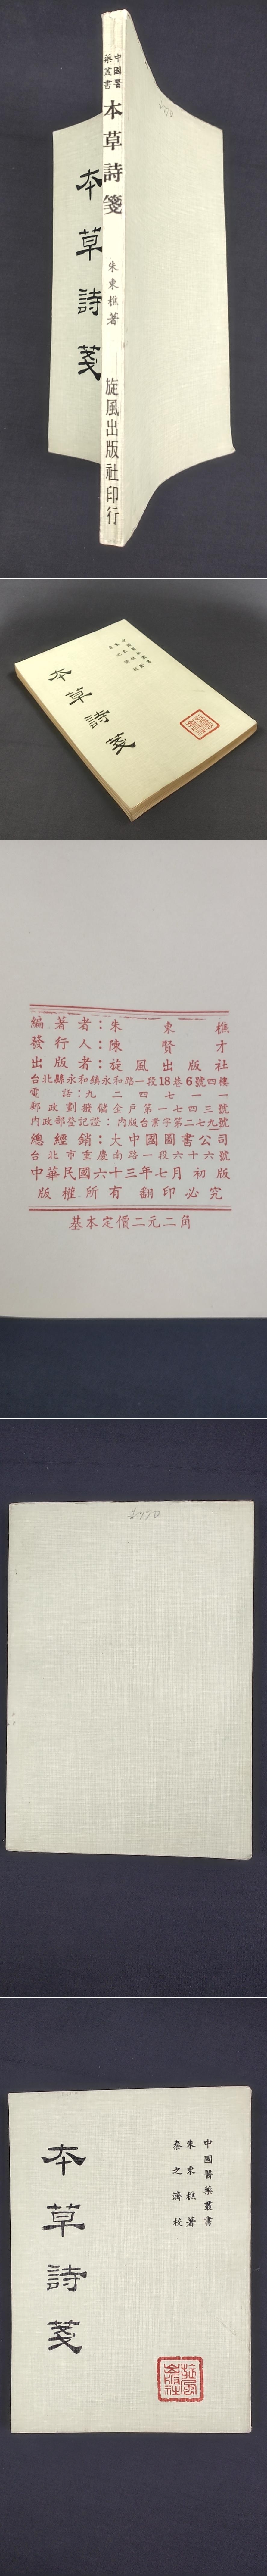 中國醫
藥叢書
本草詩箋
朱東樵著
旋風出版社印行
本草詩箋
本草詩箋
編著者：朱東樵
發行人：陳賢才
出版者：旋風出版社
台北縣永和鎮永和路一段18巷6號四樓
電話：九二四七一一
郵政劃撥儲金戶第一七四三號
內政部登記證：內版台業字第二七九號
總經銷：大中國圖書公司
台北市重慶南路一段六十六號
中華民國六十三年七月初版
版權所有翻印必究
基本定價二元二角
中國醫藥叢書
朱東樵著
秦之濟校
本草詩箋
旋風出版社